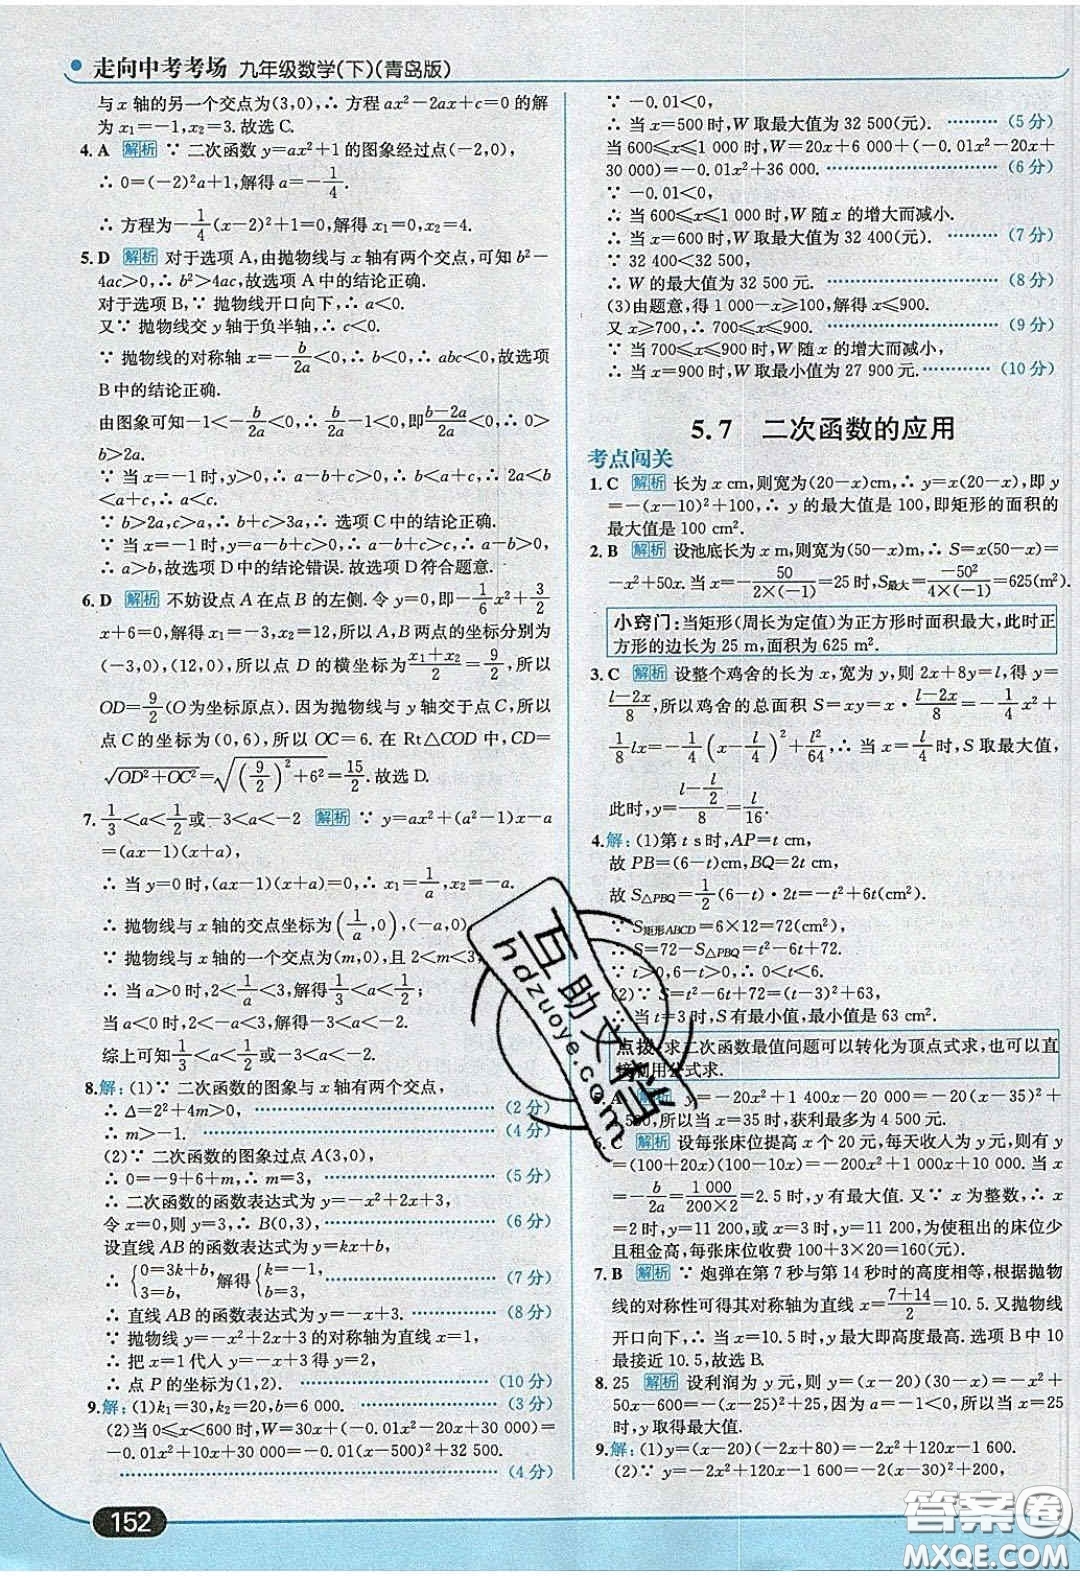 走向中考考场 九年级数学(下)(青岛版)
与x轴的另一个交点为(3,0),∴ 方程ax²-2ax+c=0的解
为x₁=-1,x₂=3.故选C.
4. A 解析 ∵ 二次函数y=ax²+1的图象经过点(-2,0),
∴ 0=(-2)²a+1,解得a=-1/4.
∴ 方程为-1/4(x-2)²+1=0,解得x₁=0,x₂=4.
5. D 解析 对于选项A,由抛物线与x轴有两个交点,可知b²-
4ac>0,∴ b²>4ac,故选项A中的结论正确.
对于选项B,∵ 抛物线开口向下,∴ a<0.
又∵ 抛物线交y轴于负半轴,∴ c<0.
∵ 抛物线的对称轴x=-b/2a<0,∴ b<0,∴ abc<0,故选项
B中的结论正确.
由图象可知-1<-b/2a<0,∴ b/2a-1<0,即(b-2a)/2a<0,∴ 0>
b>2a.
∵ 当x=-1时,y<0,∴ a-b+c>0,∴ a-2a+c<a-b
<a+c,∴ a<c.
∵ b>2a,c>a,∴ b+c>3a,∴ 选项C中的结论正确.
∵ 当x=-1时,y>0,∴ a-b+c>0,∴ a-b>-c>0,
∴ a>b,故选项D中的结论错误.故选项D符合题意.
6. D 解析 不妨设点A在点B的左侧.令y=0,即-1/6x²+3/2
x+6=0,解得x₁=-3,x₂=12,所以A,B两点的坐标分别为
(-3,0),(12,0),所以点D的横坐标为(x₁+x₂)/2=9/2,所以
OD=9/2(O为坐标原点).因为抛物线与y轴交于点C,所以
点C的坐标为(0,6),所以OC=6.在Rt△COD中,CD=
√(OD²+OC²)=√((9/2)²+6²)=15/2.故选D.
7. 1/3<a<1/2或-3<a<-2 解析 ∵ y=ax²+(a²-1)x-a
=(ax-1)(x+a),
∴ 当y=0时,(ax-1)(x+a)=0,∴ x₁=1/a,x₂=-a.
∴ 抛物线与x轴的交点坐标为(1/a,0),(-a,0).
∵ 抛物线与x轴的一个交点为(m,0),且2<m<3,
∴ 当a>0时,2<1/a<3,解得1/3<a<1/2;
当a<0时,2<-a<3,解得-3<a<-2.
综上可知1/3<a<1/2或-3<a<-2.
8.解:(1)∵ 二次函数的图象与x轴有两个交点,
∴ Δ=2²+4m>0, ………… (2分)
∴ m>-1. ………… (4分)
(2)∵ 二次函数的图象过点A(3,0),
∴ 0=-9+6+m,∴ m=3, ………… (5分)
∴ 二次函数的函数表达式为y=-x²+2x+3,
令x=0,则y=3,∴ B(0,3), ………… (6分)
设直线AB的函数表达式为y=kx+b,
∴ {0=3k+b, 3=b, 解得{k=-1, b=3, ………… (7分)
∴ 直线AB的函数表达式为y=-x+3. ………… (8分)
∵ 抛物线y=-x²+2x+3的对称轴为直线x=1,
∴ 把x=1代入y=-x+3得y=2,
∴ 点P的坐标为(1,2). ………… (10分)
9.解:(1)k₁=30,k₂=20,b=6 000. ………… (3分)
(2)当0≤x<600时,W=30x+(-0.01x²-20x+30 000)=
-0.01x²+10x+30 000=-0.01(x-500)²+32 500,
………… (4分)
∵ -0.01<0,
∴ 当x=500时,W取最大值为32 500(元). ……… (5分)
当600≤x≤1 000时,W=20x+6 000+(-0.01x²-20x+
30 000)=-0.01x²+36 000. ………… (6分)
∵ -0.01<0,
∴ 当600≤x≤1 000时,W随x的增大而减小.
∴ 当x=600时,W取最大值为32 400(元). ……… (7分)
∵ 32 400<32 500,
∴ W的最大值为32 500元. ………… (8分)
(3)由题意,得1 000-x≥100,解得x≤900.
又x≥700,∴ 700≤x≤900. ………… (9分)
∵ 当700≤x≤900时,W随x的增大而减小,
∴ 当x=900时,W取最小值为27 900元. ………… (10分)
5.7 二次函数的应用
考点闯关
1. C 解析 长为x cm,则宽为(20-x)cm,∴ y=x(20-x),即y
=-(x-10)²+100,∴ y的最大值是100,即矩形的面积的
最大值是100 cm².
2. B 解析 设池底长为x m,则宽为(50-x)m,∴ S=x(50-x)=
-x²+50x.当x=-50/(2×(-1))=25时,S最大=-50²/(4×(-1))=625(m²).
小窍门:当矩形(周长为定值)为正方形时面积最大,此时正
方形的边长为25 m,面积为625 m².
3. C 解析 设整个鸡舍的长为x,宽为y,则2x+8y=l,得y=
(l-2x)/8,所以鸡舍的总面积S=xy=x·(l-2x)/8=-1/4x²+
1/8lx=-1/4(x-l/4)²+l²/64,∴ 当x=l/4时,S取最大值,
此时,y=(l-l/2)/8=l/16.
4.解:(1)第t s时,AP=t cm,
故PB=(6-t)cm,BQ=2t cm,
故S△PBQ=1/2(6-t)·2t=-t²+6t(cm²).
∵ S矩形ABCD=6×12=72(cm²),
∴ S=72-S△PBQ=t²-6t+72.
∵ t>0,6-t>0,∴ 0<t<6.
(2)∵ S=t²-6t+72=(t-3)²+63,
∴ 当t=3时,S有最小值,最小值是63 cm².
点拨:求二次函数最值问题可以转化为顶点式求,也可以直
接利用公式求.
5. A 解析 y=-20x²+1 400x-20 000=-20(x-35)²+
4 500,所以当x=35时,获利最多为4 500元.
6. C 解析 设每张床位提高x个20元,每天收入为y元,则有y
=(100+20x)(100-10x)=-200x²+1 000x+10 000.当x
=-b/2a=1 000/(200×2)=2.5时,y有最大值.又∵ x为整数,∴ 当x=
2时,y=11 200,或x=3时,y=11 200,为使租出的床位少
且租金高,每张床位收费100+3×20=160(元).
7. B 解析 ∵ 炮弹在第7秒与第14秒时的高度相等,根据抛物
线的对称性可得其对称轴为直线x=(7+14)/2=10.5.又抛物线
开口向下,∴ 当x=10.5时,y最大即高度最高.选项B中10
最接近10.5,故选B.
8. 25 解析 设利润为y元,则y=(x-20)(30-x)=-x²+
50x-600=-(x-25)²+25,因为a=-1<0,所以当x=25
时,y取得最大值.
9.解:(1)y=(x-20)(-2x+80)=-2x²+120x-1 600.
(2)∵ y=-2x²+120x-1 600,
152
互助文档
hdzuoye.com
答案圈
MXQE.COM